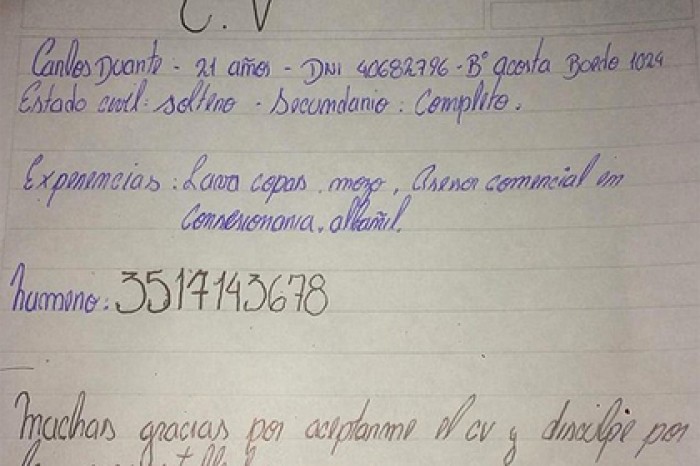 C. V
Carlos Duarte - 21 años - DNI 40682796 - B° acosta Boedo 1024
Estado civil: soltero - Secundario: Completo.
Experiencias: Lava copas, mozo, Asesor comercial en
Consesionaria, albañil.
numero: 3517143678
muchas gracias por aceptarme el cv y disculpe por